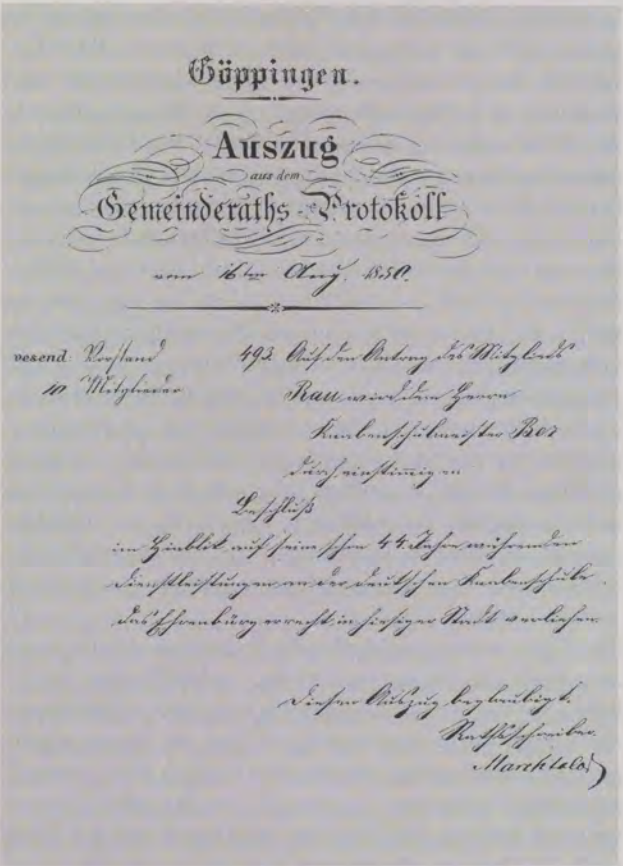 Göppingen.
Auszug
aus dem
Gemeinderaths-Protokoll
vom 16ten Aug. 1850.
wesend: Vorstand
10 Mitglieder
493. Auf den Antrag des Mitglieds
Rau wird dem Herrn
Knabenschulmeister Bez
durch einstimmigen
Beschluß
im Hinblick auf seine schon 44 Jahre währenden
Dienstleistungen an der deutschen Knabenschule
das Ehrenbürgerrecht in hiesiger Stadt verliehen.
Diesen Auszug beglaubigt.
Rathsschreiber